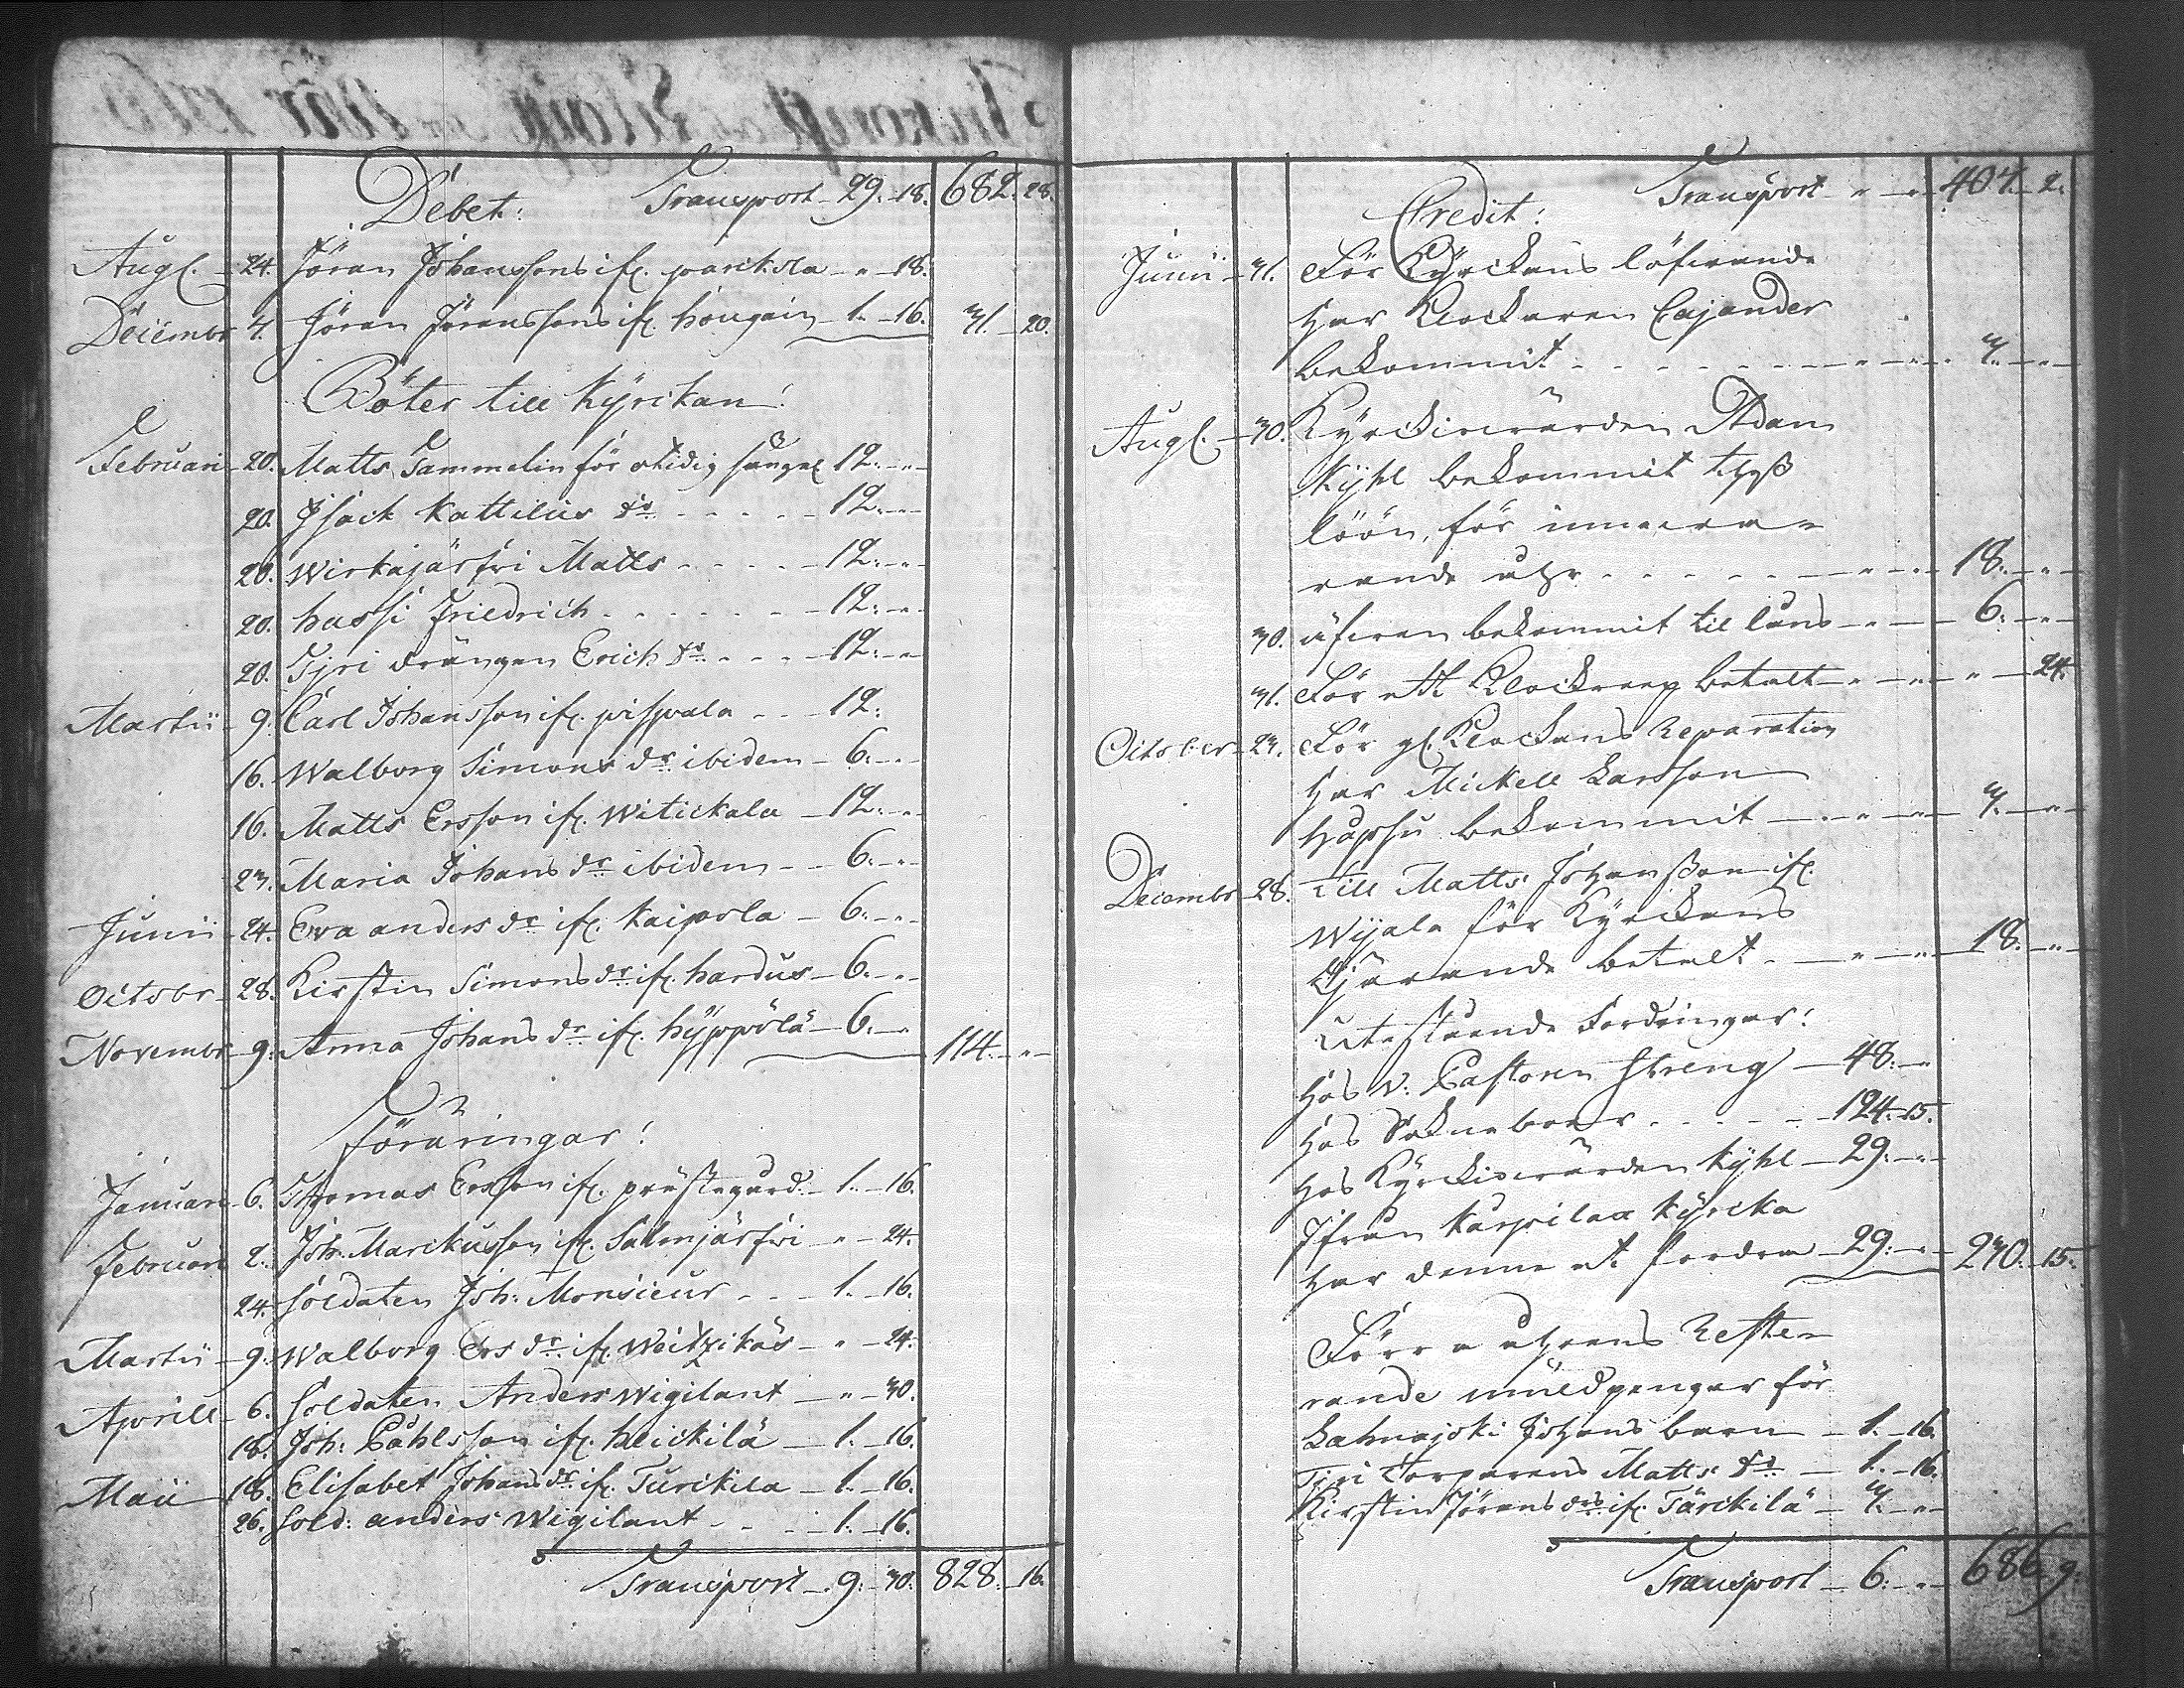 Debet: Transport 29. 18. 682. 28.
Augl. 24. Jöran Johanssons ifr. parikola " 18.
Decembr 7. Jöran Jöranssons ifr. hougain 1. 16. 31. 20.
Böter till Kyrckan!
Februari 20. Matts Tammelin för otidig 12. "
20. Isack Kattilus do 12. "
20. Wirkajärfvi Matts 12. "
20. hassi Friedrich 12. "
20. Tjri drängen Erich do 12. "
Martii 9. Carl Johansson ifr. pispala 12.
16. Walborg Simons dr ibidem 6. "
16. Matts Ersson ifr. Witickala 12. "
23. Maria Johans dr ibidem 6. "
Junii 24. Eva anders dr ifr. Kaipola 6. "
Octobr 28. Kirstin Simons dr ifr. hardus 6. "
Novembr 9. Anna Johans dr ifr. hyppölä 6. " 114. "
Föräringar!
Januari 6. Thomas Ersson ifr. prästegård 1. 16.
Februari 2. Joh. Marckusson ifr. Salmjärfvi " 24.
24. soldaten Joh: Monsieur 1. 16.
Martii 9. Walborg Ers dr ifr. Weitzikäs " 24.
Aprill 6. soldaten Anders Wigilant " 30.
18. Joh: Påhlsson ifr. heickilä 1. 16.
Maii 18. Elisabet Johans dr ifr. Turckila 1. 16.
26. sold: anders Wigilant 1. 16.
Transport 9. 30. 828. 16.
Credit: Transport " " 407. 2.
Junii 31. För Kyrckans
har Klockaren Cajander
bekommit " " 3. "
Augl. 30. Kyrckiowärden Adam
Kyhl bekommit
löön, för
rande " " 18. "
30. äfwen bekommit til låns " 6. "
31. För ett Klockreep betalt " " " 24.
October 23. För gl. Klockans Reparation
har Mickell Larsson
Hapsu bekommit " " 3. "
Decembr 28. till Matts Johansson ifr.
Wijala för Kyrckans
Tjärande betalt " " 18. "
Utestående Fordringar!
hos V: Pastoren Streng 48. "
hos Sokneboer 124. 15.
hos Kyrckiowärden Kyhl 29. "
Ifrån Karpilax Kyrcka
har denne at fordra 29. " 230. 15.
Förra åhrens Reste-
rande müldpengar för
Lahnajoki Johans barn 1. 16.
Tiri Torparens Matts do 1. 16.
Kirstin Jörans drs ifr. Tärckilä 3. "
Transport 6. " 686. 9.